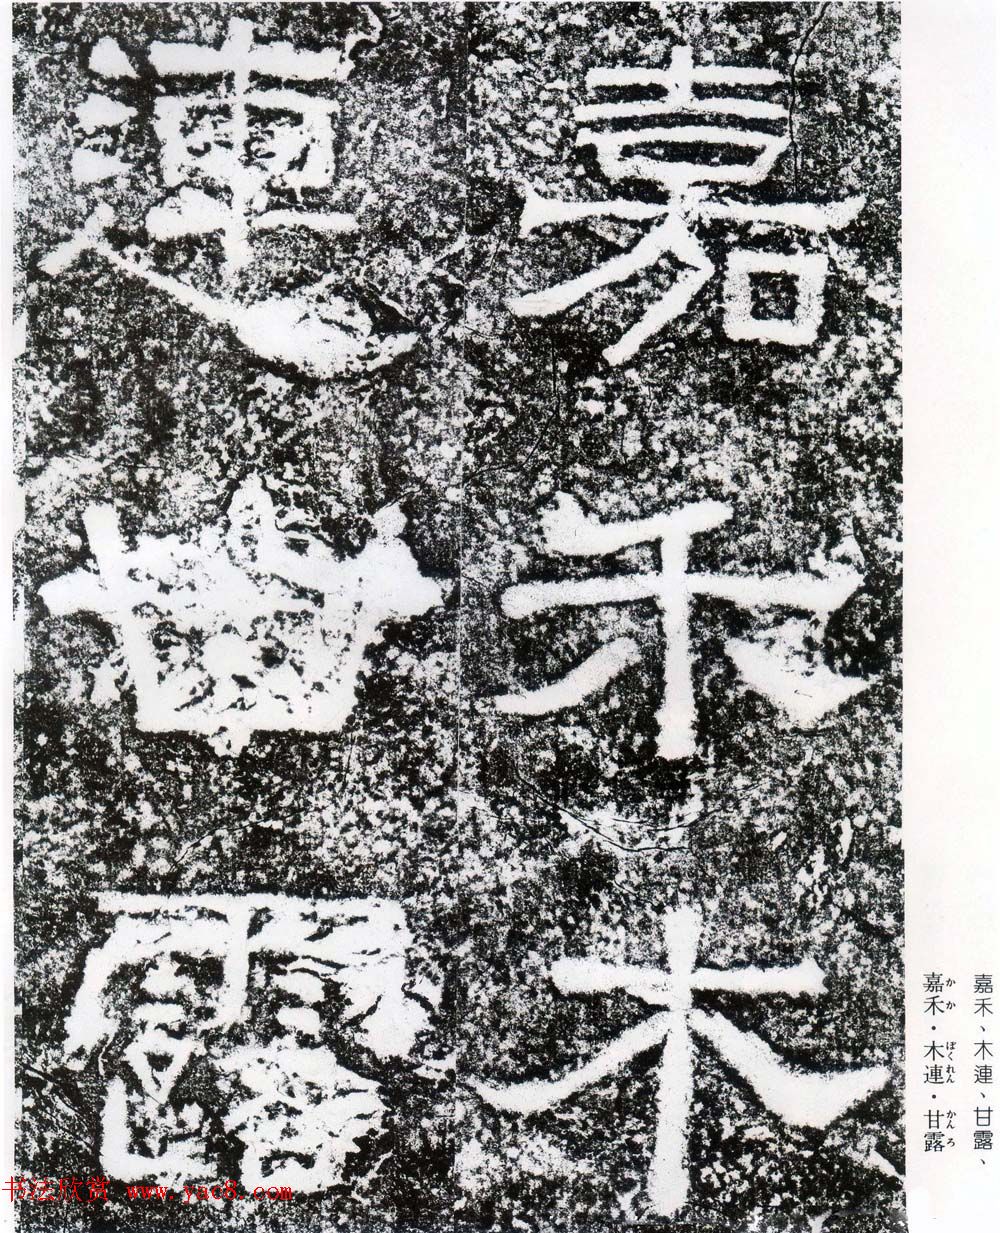 嘉禾木
連甘露
嘉禾、木連、甘露、
かか ぼくれん かんろ
嘉禾・木連・甘露
书法欣赏 www.yac8.com